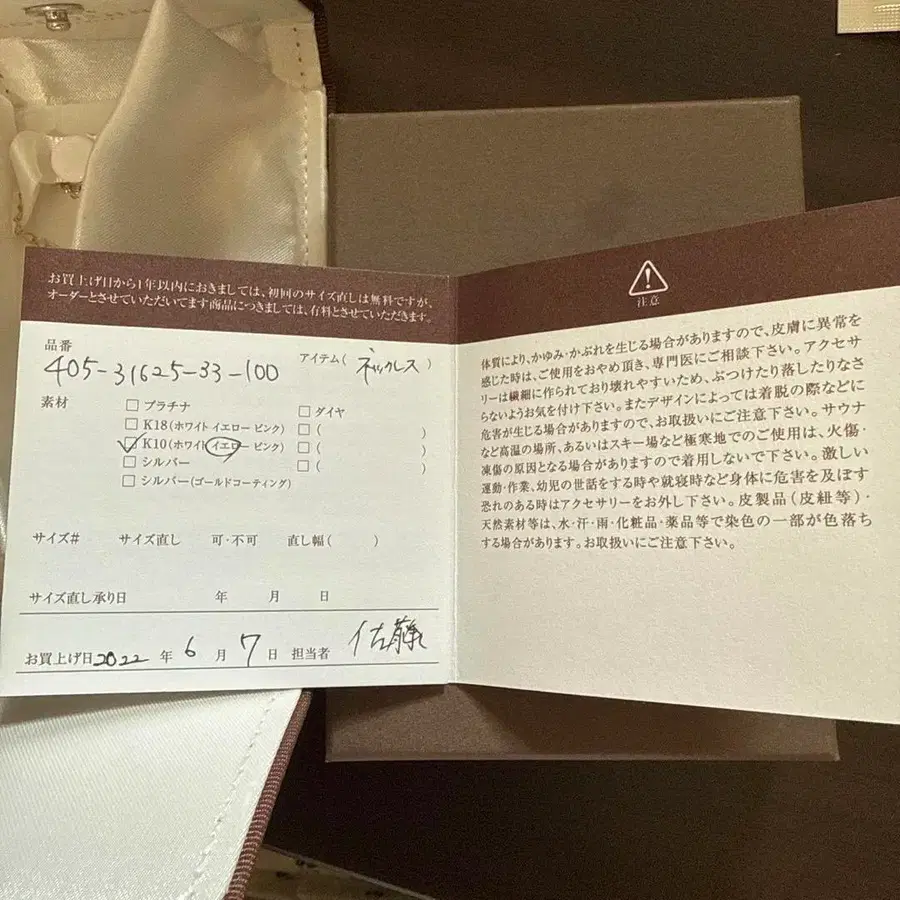 お買上げ日から1年以内におきましては、初回のサイズ直しは無料ですが、
オーダーとさせていただいてます商品につきましては、有料とさせていただきます。
品番
405-31625-33-100
アイテム( ネックレス )
素材
□ プラチナ
□ K18(ホワイト イエロー ピンク)
□ K10(ホワイト イエロー ピンク)
□ シルバー
□ シルバー(ゴールドコーティング)
□ ダイヤ
□ ( )
□ ( )
□ ( )
サイズ# サイズ直し 可・不可 直し幅( )
サイズ直し承り日 年 月 日
お買上げ日 2022 年 6 月 7 日 担当者 佐藤
注意
体質により、かゆみ・かぶれを生じる場合がありますので、皮膚に異常を
感じた時は、ご使用をおやめ頂き、専門医にご相談下さい。アクセサ
リーは繊細に作られており壊れやすいため、ぶつけたり落したりなさ
らないようお気を付け下さい。またデザインによっては着脱の際などに
危害が生じる場合がありますので、お取扱いにご注意下さい。サウナ
など高温の場所、あるいはスキー場など極寒地でのご使用は、火傷・
凍傷の原因となる場合がありますので着用しないで下さい。激しい
運動・作業、幼児の世話をする時や就寝時など身体に危害を及ぼす
恐れのある時はアクセサリーをお外し下さい。皮製品(皮紐等)・
天然素材等は、水・汗・雨・化粧品・薬品等で染色の一部が色落ち
する場合があります。お取扱いにご注意下さい。